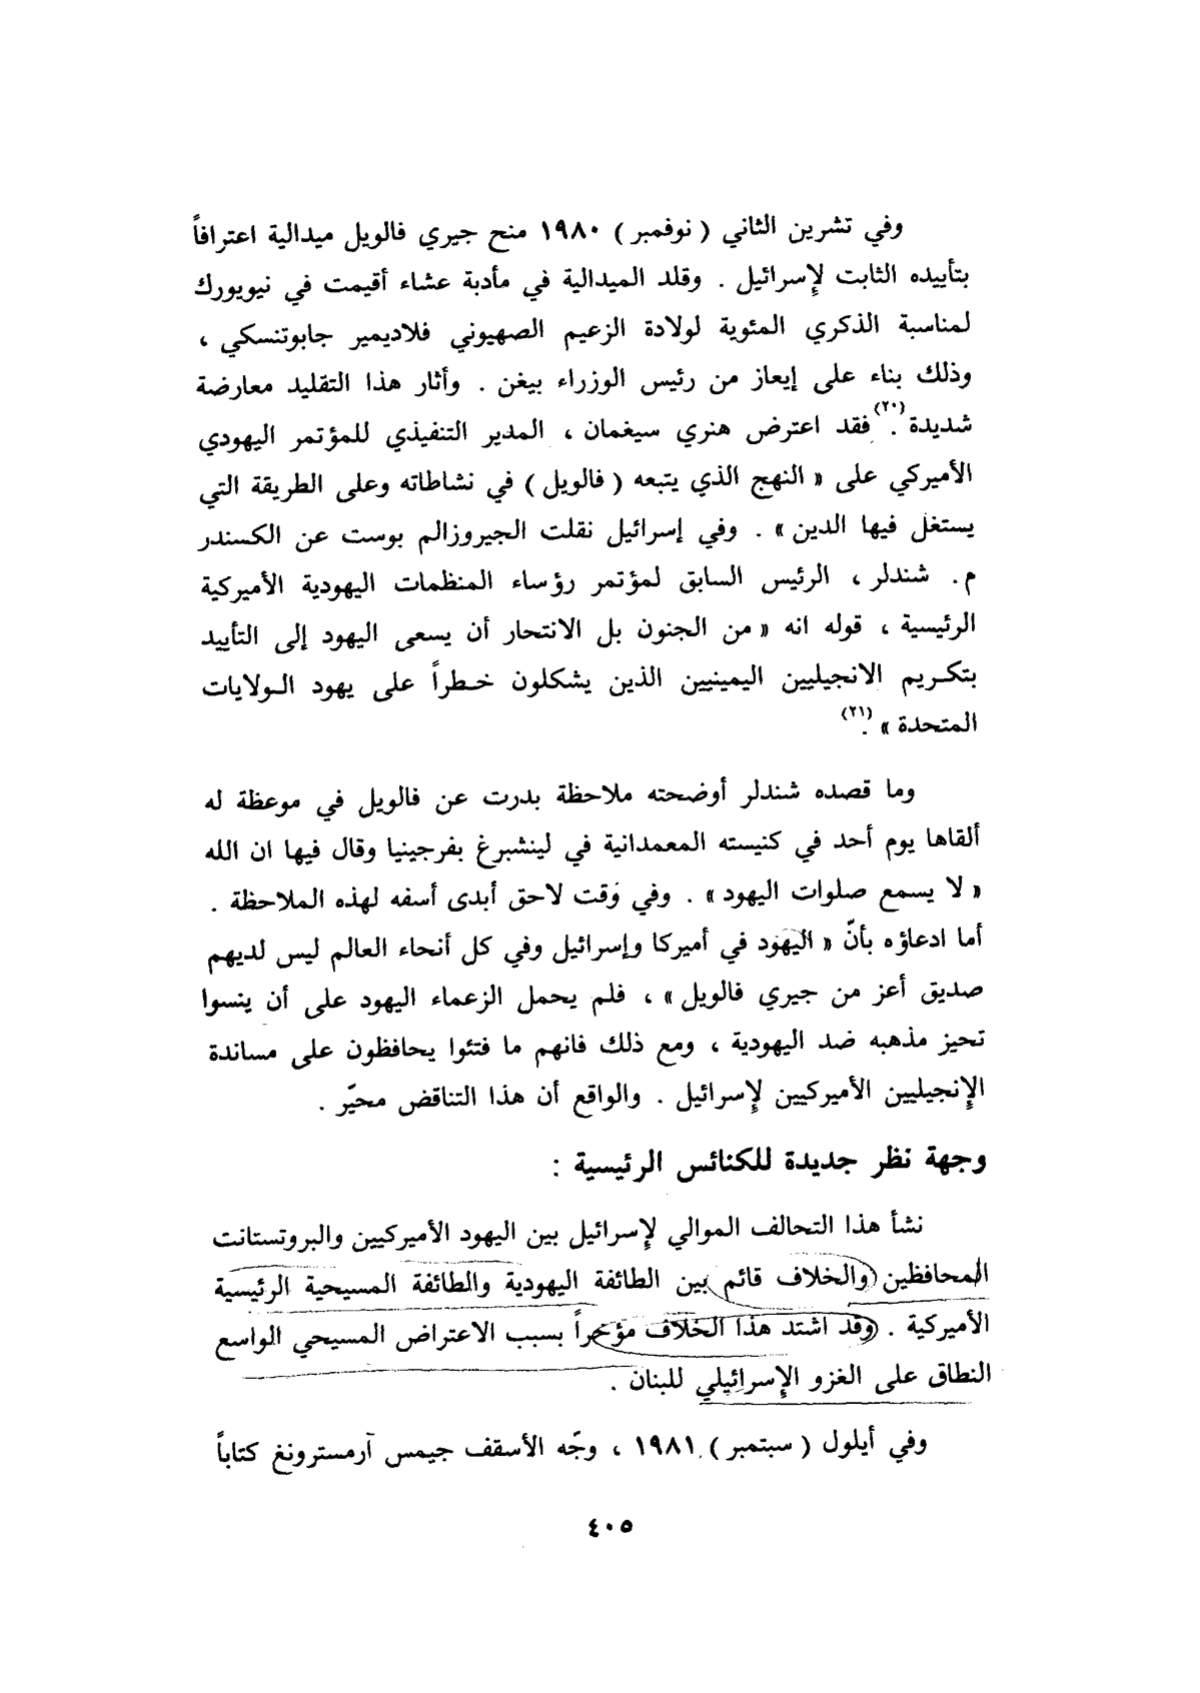 وفي تشرين الثاني ( نوفمبر ) ١٩٨٠ منح جيري فالويل ميدالية اعترافاً
بتأييده الثابت لإسرائيل . وقلد الميدالية في مأدبة عشاء أقيمت في نيويورك
لمناسبة الذكري المئوية لولادة الزعيم الصهيوني فلاديمير جابوتنسكي ،
وذلك بناء على إيعاز من رئيس الوزراء بيغن . وأثار هذا التقليد معارضة
شديدة (٢٠). فقد اعترض هنري سيغمان ، المدير التنفيذي للمؤتمر اليهودي
الأميركي على « النهج الذي يتبعه ( فالويل ) في نشاطاته وعلى الطريقة التي
يستغل فيها الدين » . وفي إسرائيل نقلت الجيروزالم بوست عن الكسندر
م. شندلر ، الرئيس السابق لمؤتمر رؤساء المنظمات اليهودية الأميركية
الرئيسية ، قوله انه « من الجنون بل الانتحار أن يسعى اليهود إلى التأييد
بتكريم الانجيليين اليمينيين الذين يشكلون خطراً على يهود الولايات
المتحدة » (٢١).
وما قصده شندلر أوضحته ملاحظة بدرت عن فالويل في موعظة له
ألقاها يوم أحد في كنيسته المعمدانية في لينشبرغ بفرجينيا وقال فيها ان الله
« لا يسمع صلوات اليهود » . وفي وقت لاحق أبدى أسفه لهذه الملاحظة .
أما ادعاؤه بأنّ « اليهود في أميركا وإسرائيل وفي كل أنحاء العالم ليس لديهم
صديق أعز من جيري فالويل » ، فلم يحمل الزعماء اليهود على أن ينسوا
تحيز مذهبه ضد اليهودية ، ومع ذلك فانهم ما فتئوا يحافظون على مساندة
الإنجيليين الأميركيين لإسرائيل . والواقع أن هذا التناقض محيّر .
وجهة نظر جديدة للكنائس الرئيسية :
نشأ هذا التحالف الموالي لإسرائيل بين اليهود الأميركيين والبروتستانت
المحافظين والخلاف قائم بين الطائفة اليهودية والطائفة المسيحية الرئيسية
الأميركية . وقد اشتد هذا الخلاف مؤخراً بسبب الاعتراض المسيحي الواسع
النطاق على الغزو الإسرائيلي للبنان .
وفي أيلول ( سبتمبر ) ١٩٨١ ، وجّه الأسقف جيمس آرمسترونغ كتاباً
٤٠٥